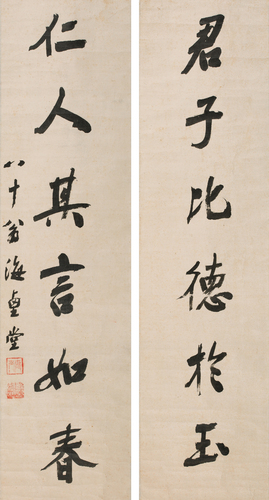 君子比德於玉
仁人其言如春
八十翁海壺堂